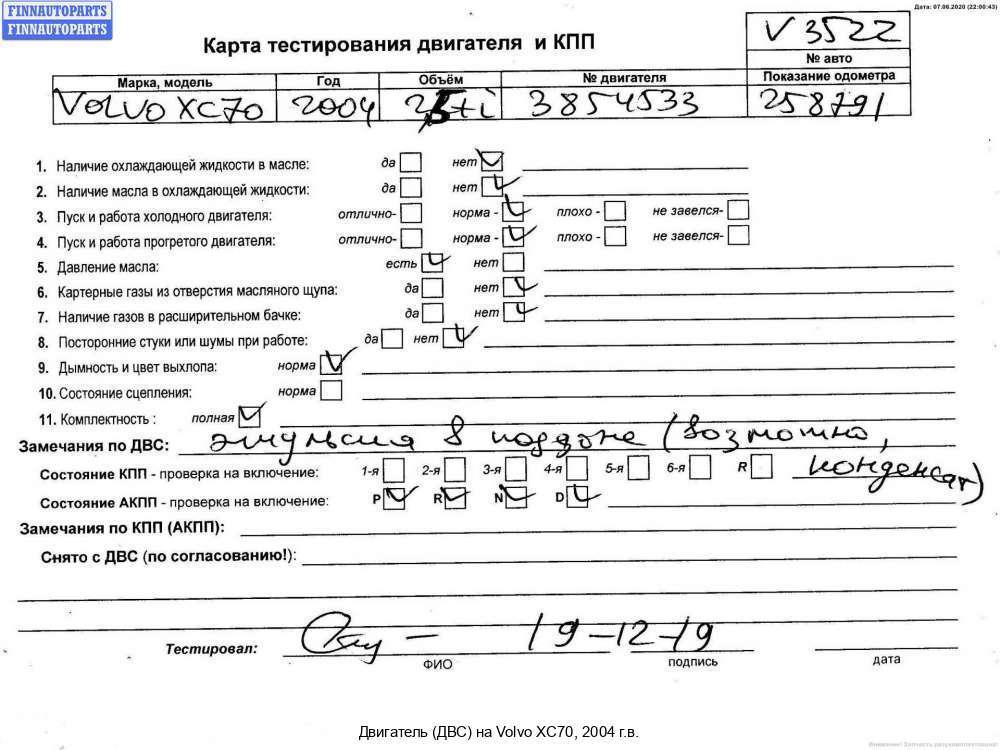 FINNAUTOPARTS
FINNAUTOPARTS
Дата: 07.06.2020 (22:00:43)
V 3522
Карта тестирования двигателя и КПП
№ авто
Марка, модель Год Объём № двигателя Показание одометра
VOLVO XC70 2004 2,5ti 3854533 258791
1. Наличие охлаждающей жидкости в масле: да нет
2. Наличие масла в охлаждающей жидкости: да нет
3. Пуск и работа холодного двигателя: отлично- норма - плохо - не завелся-
4. Пуск и работа прогретого двигателя: отлично- норма - плохо - не завелся-
5. Давление масла: есть нет
6. Картерные газы из отверстия масляного щупа: да нет
7. Наличие газов в расширительном бачке: да нет
8. Посторонние стуки или шумы при работе: да нет
9. Дымность и цвет выхлопа: норма
10. Состояние сцепления: норма
11. Комплектность : полная
Замечания по ДВС: эмульсия в поддоне (возможно,
конденсат)
Состояние КПП - проверка на включение: 1-я 2-я 3-я 4-я 5-я 6-я R
Состояние АКПП - проверка на включение: P R N D
Замечания по КПП (АКПП):
Снято с ДВС (по согласованию!):
Тестировал: 19-12-19
ФИО подпись дата
Двигатель (ДВС) на Volvo XC70, 2004 г.в.